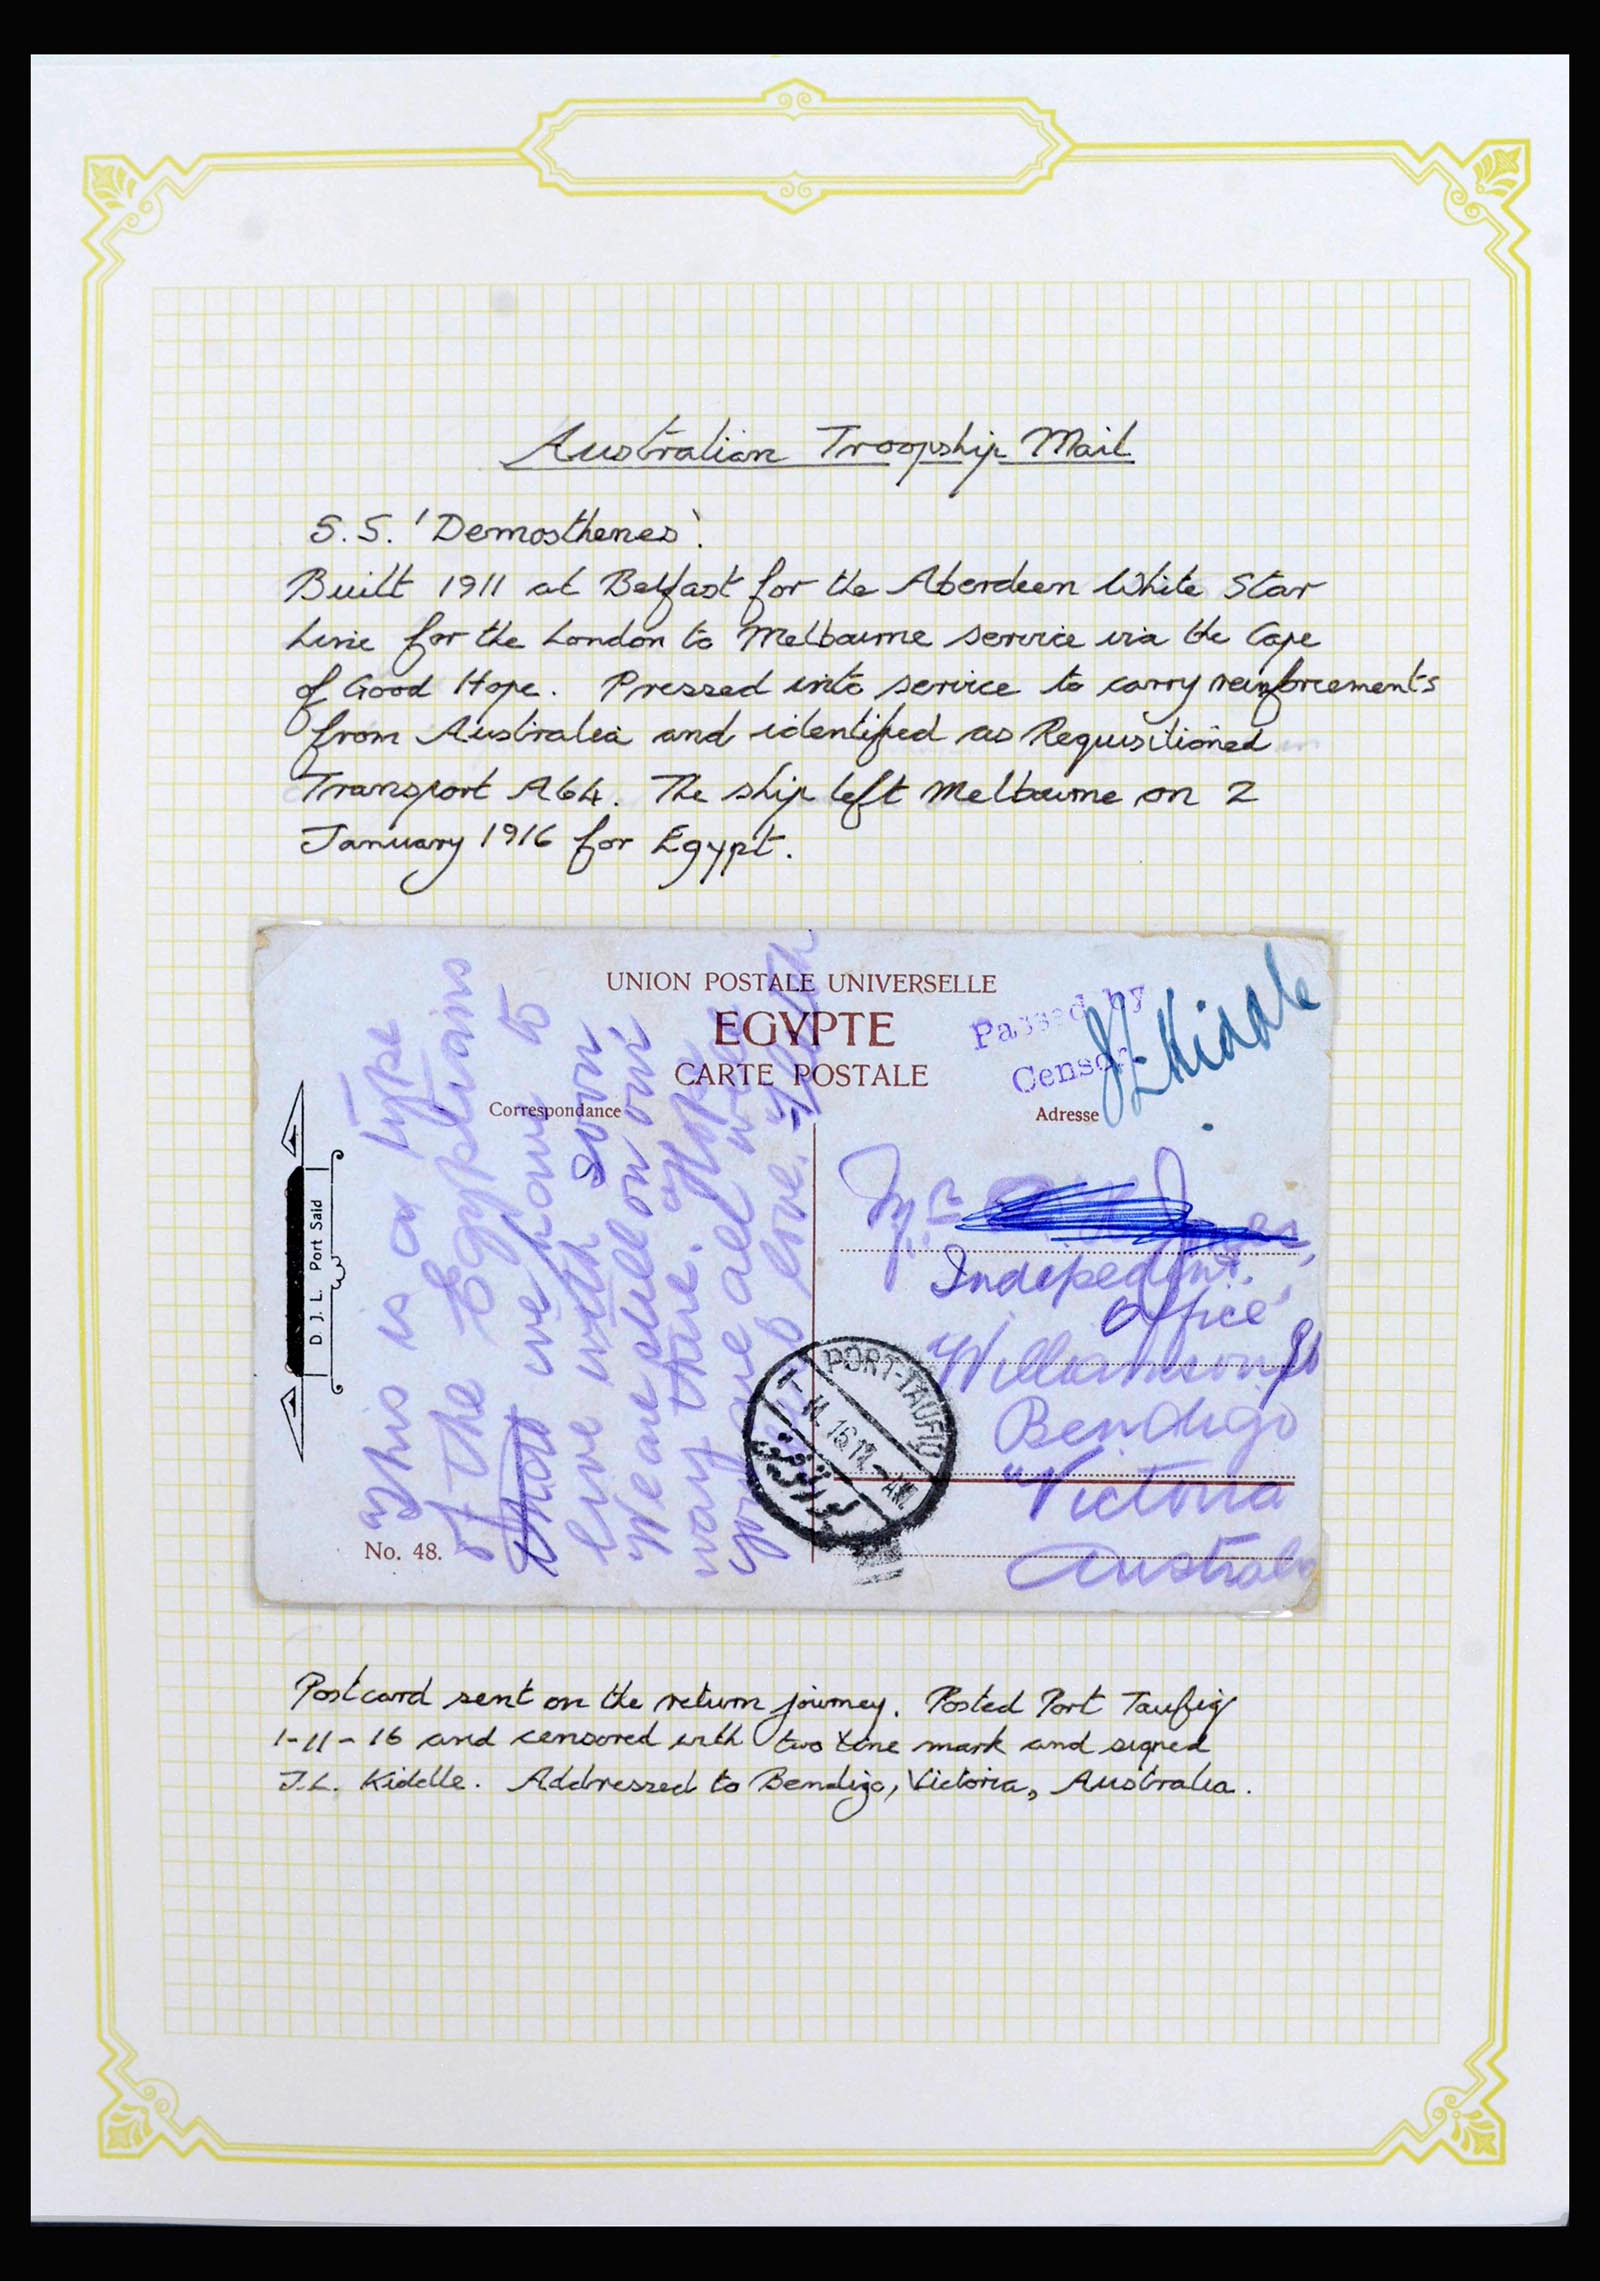 Australian Troopship Mail
S.S. 'Demosthenes'.
Built 1911 at Belfast for the Aberdeen White Star
Line for the London to Melbourne service via the Cape
of Good Hope. Pressed into service to carry reinforcements
from Australia and identified as Requisitioned
Transport A64. The ship left Melbourne on 2
January 1916 for Egypt.
UNION POSTALE UNIVERSELLE
EGYPTE
CARTE POSTALE
Correspondance
Adresse
Passed by
Censor
J L Kiddle
D. J. L. Port Said
This is a type
of the Egyptians
that we have to
live with
We are still on our
way there. Hope
you are all well
love.
No. 48.
Mr
Indepedent.
Office
Williamson St
Bendigo
Victoria
Australia
PORT-TAUFIQ
1. 11. 16 11.- AM.
Postcard sent on the return journey. Posted Port Taufiq
1-11-16 and censored with two line mark and signed
J.L. Kiddle. Addressed to Bendigo, Victoria, Australia.